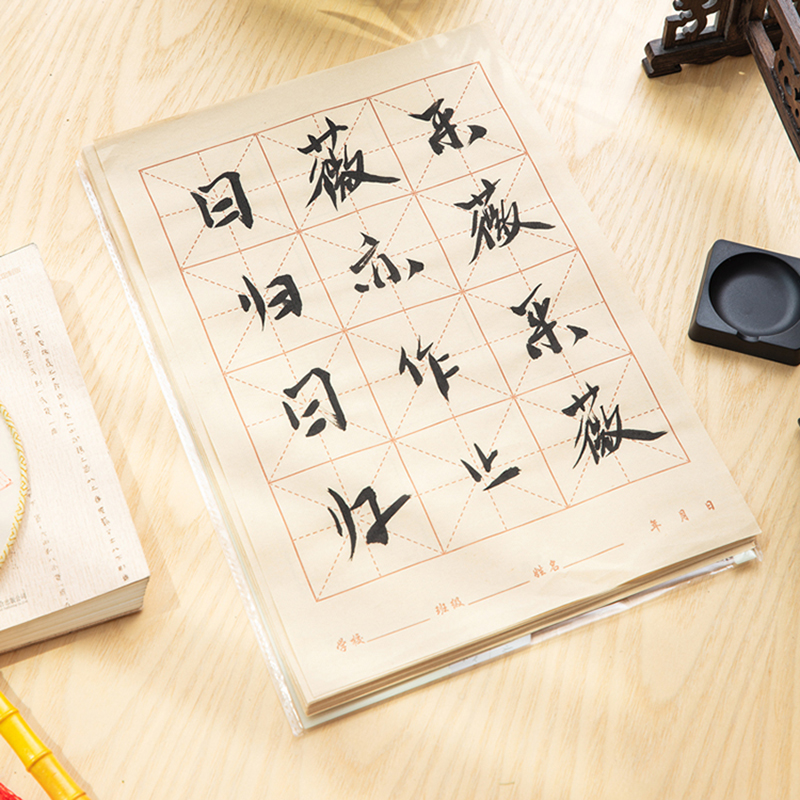 采薇采薇
薇亦作止
曰归曰归
学校 班级 姓名 年 月 日